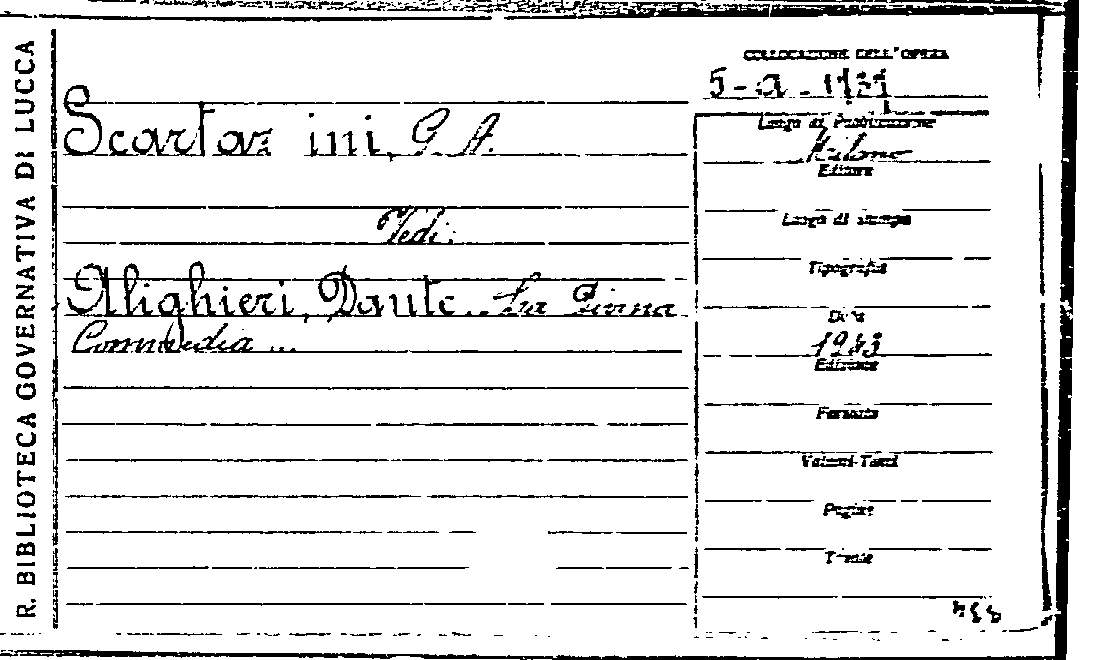 R. BIBLIOTECA GOVERNATIVA DI LUCCA
COLLOCAZIONE DELL'OPERA
5-a-
Scartaz ini, G A.
Luogo di Pubblicazione
Milano
Editore
Vedi:
Luogo di stampa
Tipografia
Alighieri, Dante. La Divina
Commedia ...
Data
Edizione
Formato
Volumi-Tomi
Pagine